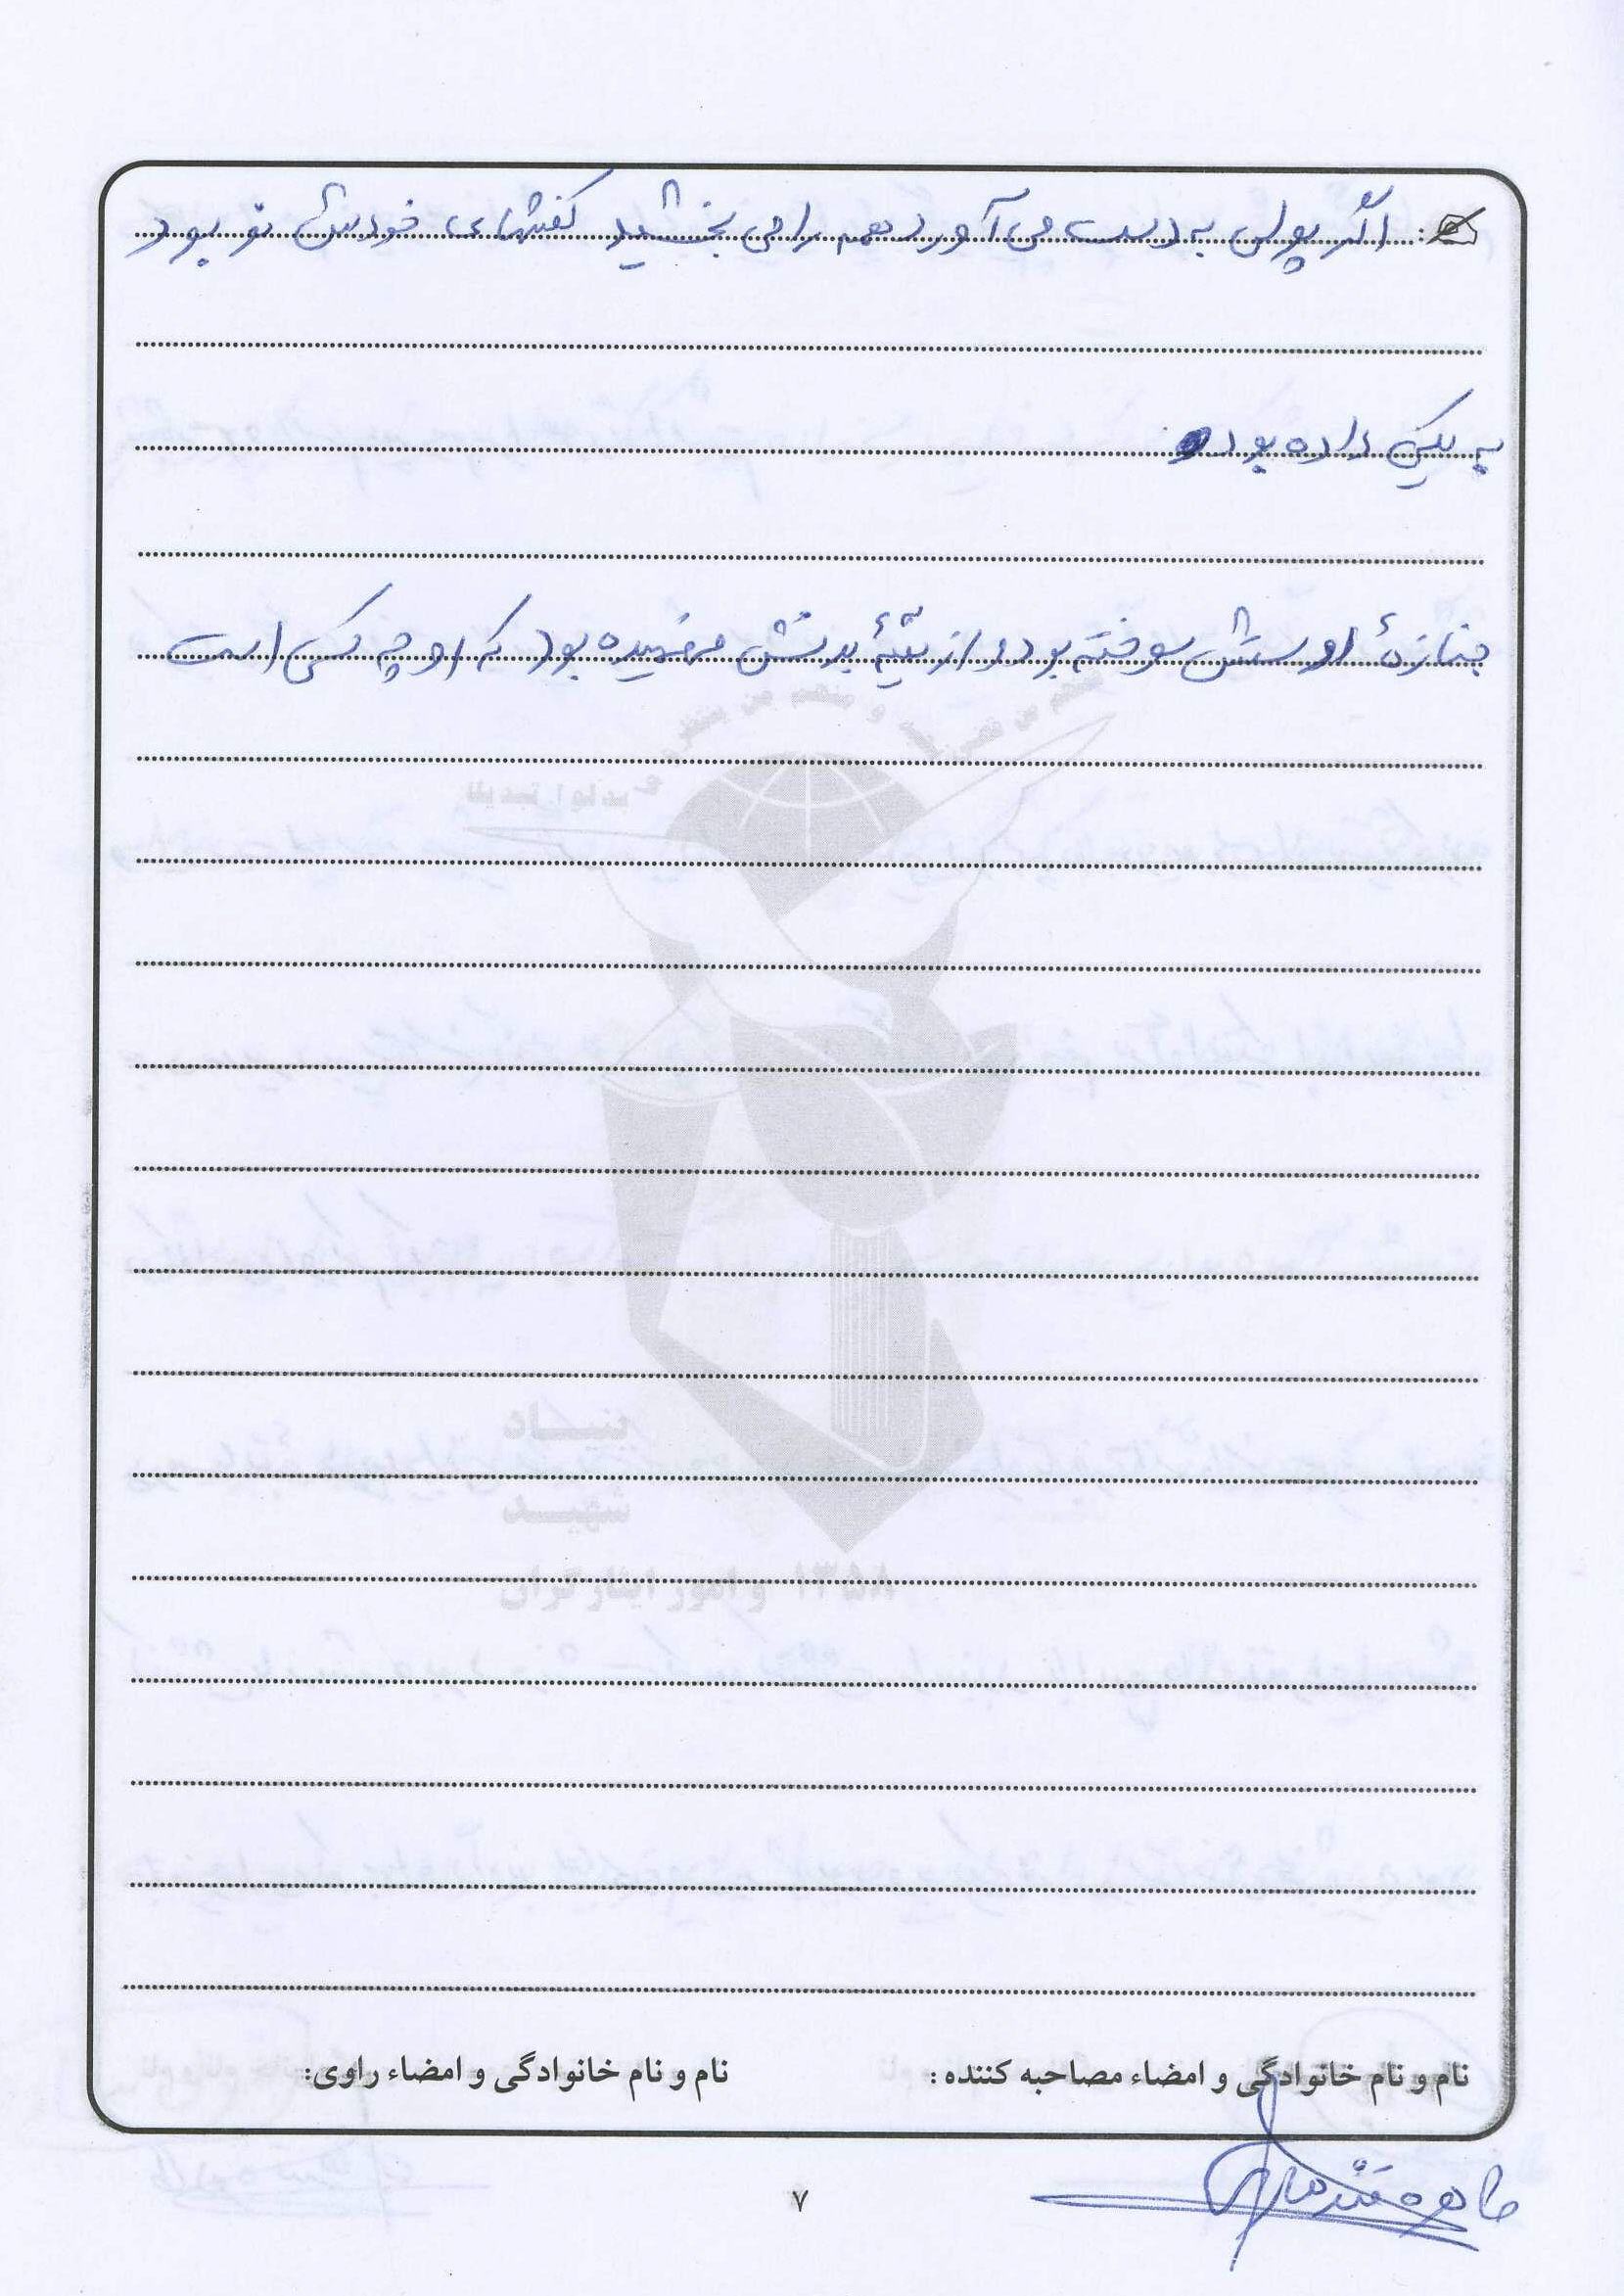 اگر پولی به دست می‌آورد همه را می بخشید کفشهای خودش نو بود
به یکی داده بود
جنازهٔ او سوخته بود و از بدنش فهمیده بود که او چه کسی است
بنیاد
شهید
و امور ایثارگران ۱۳۵۸
نام و نام خانوادگی و امضاء مصاحبه کننده :
نام و نام خانوادگی و امضاء راوی:
طاهره
۷